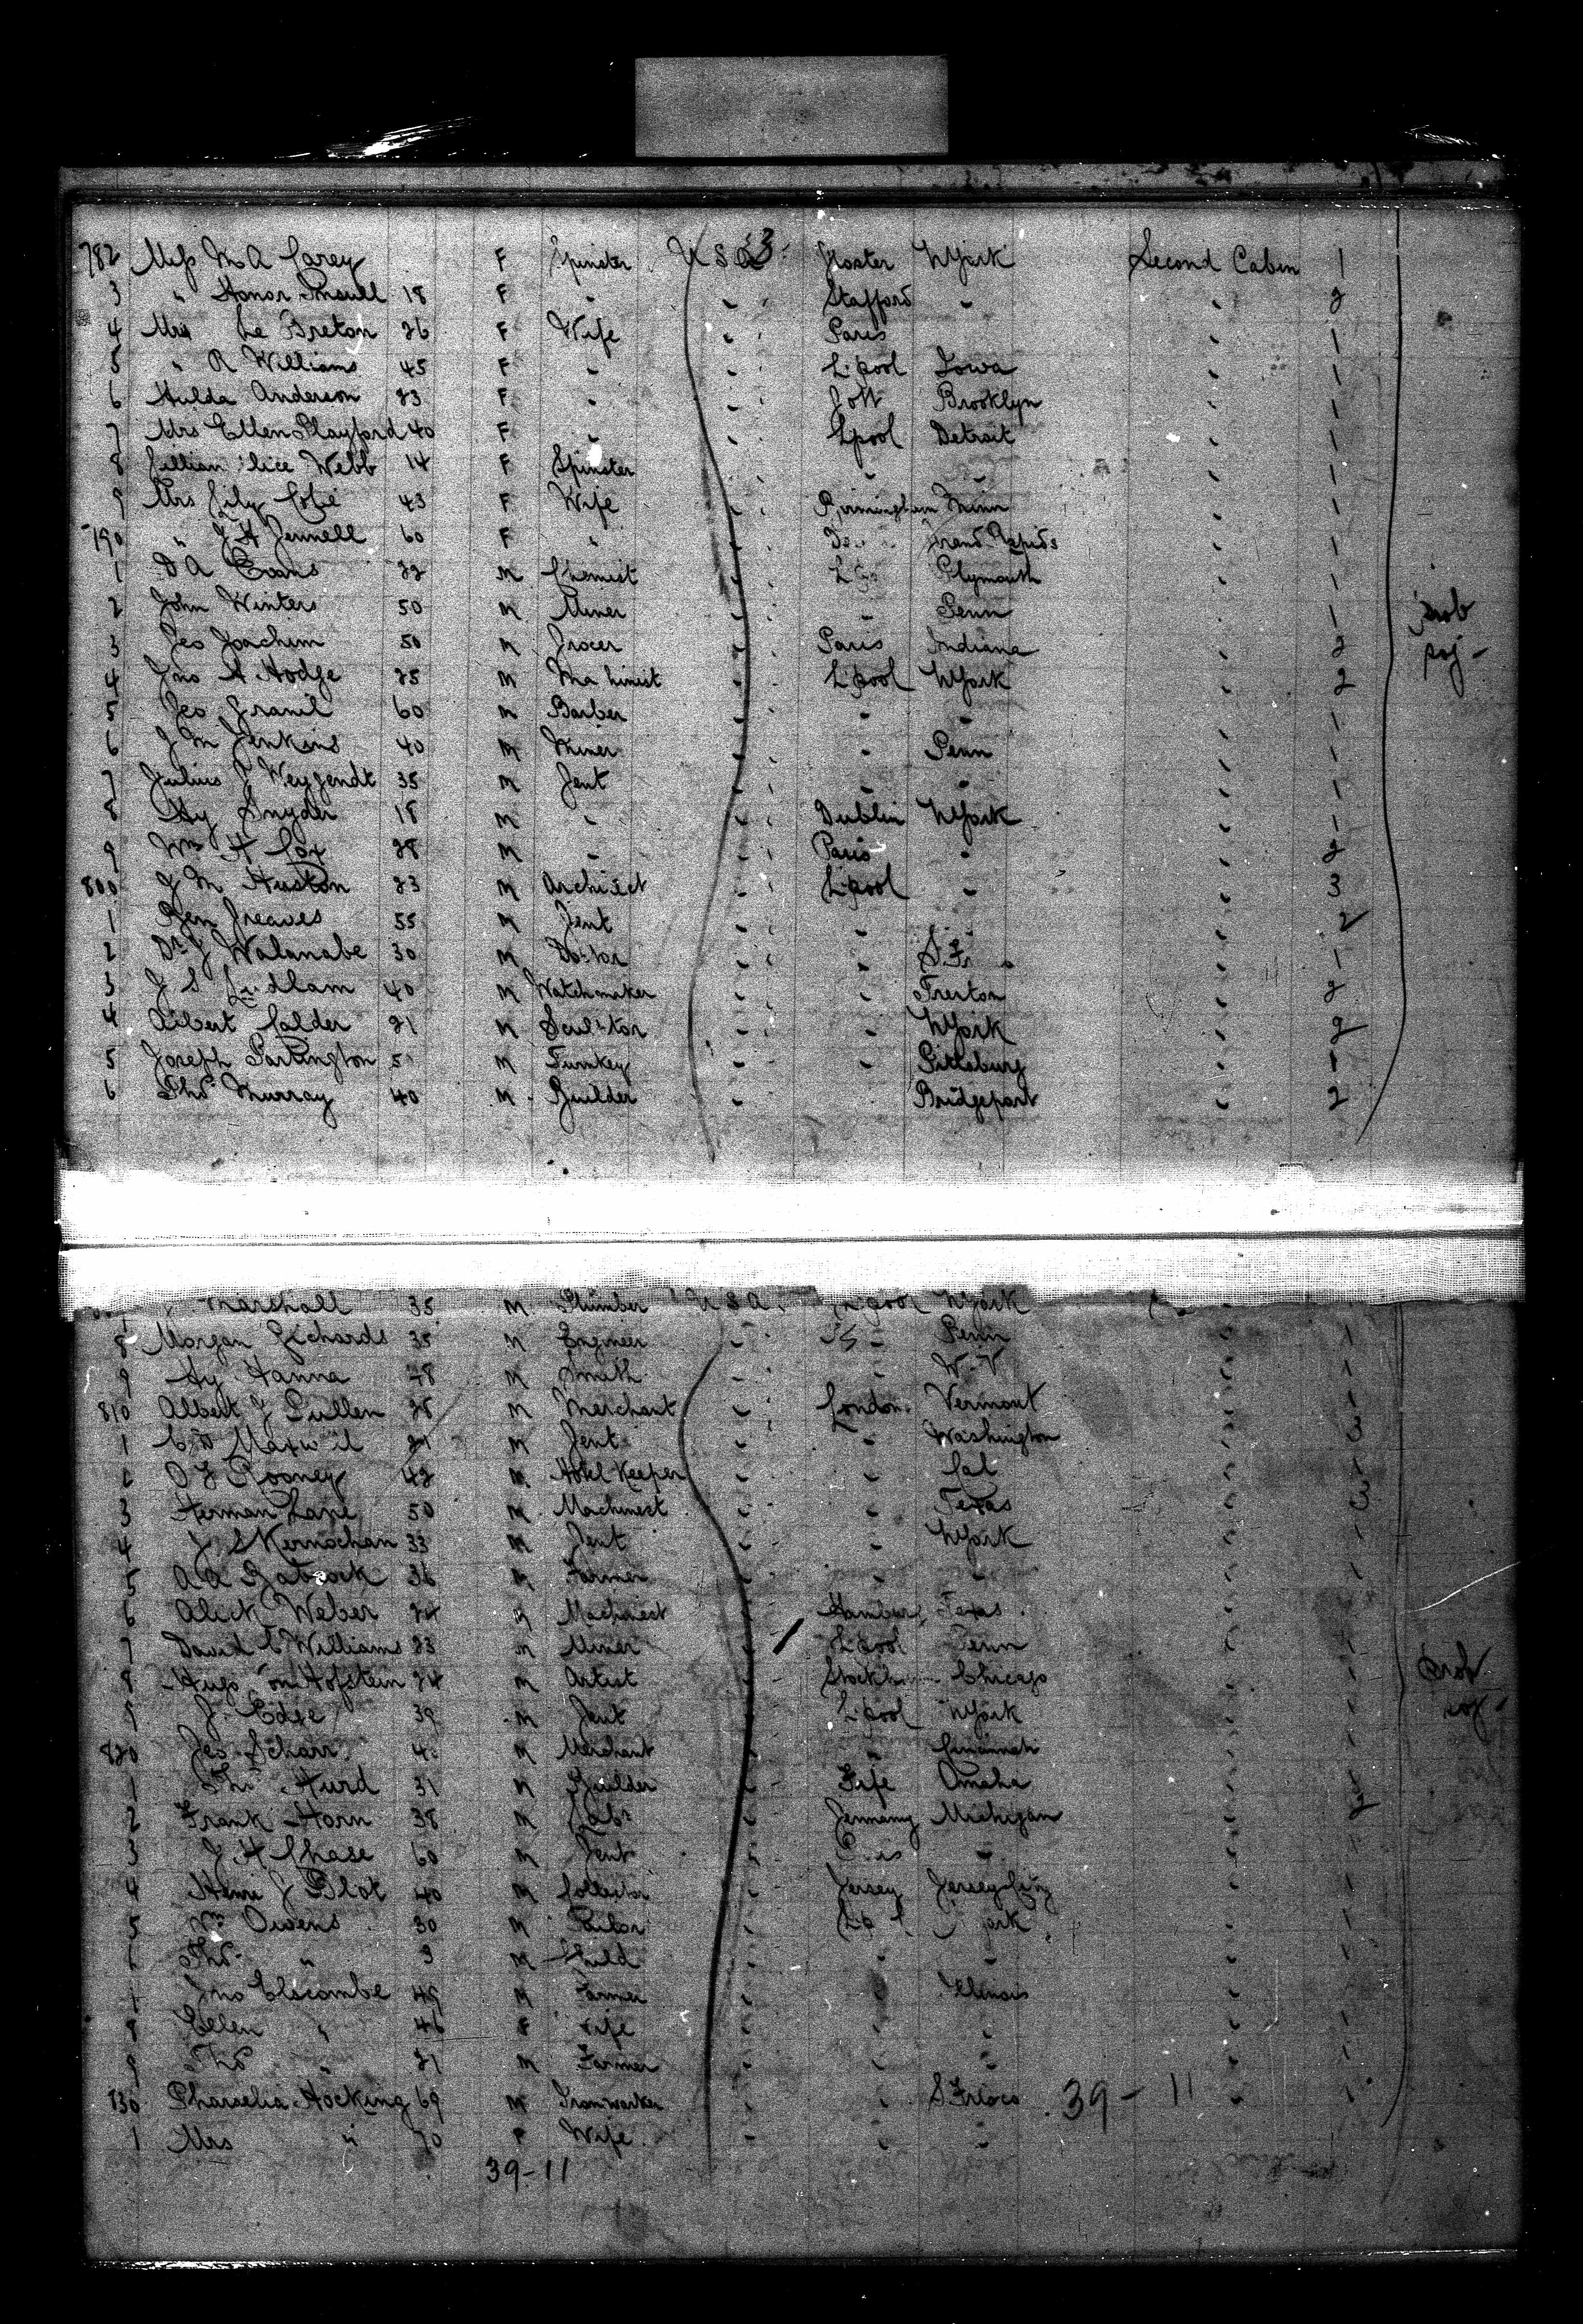 782 Miss M A Carey F Spinster U S A 3 N York Second Cabin 1
3 " Honor 18 F " " Stafford " " 2
4 Mrs Le Breton 26 F Wife " Paris " 1
5 " R Williams 45 F " " L.pool Iowa " 1
6 Hulda Anderson 23 F " " Brooklyn " 1
7 Mrs Ellen Playford 40 F " " Lpool Detroit " 1
8 Lillian lice Webb 14 F Spinster " " " " 1
9 Mrs Lily 43 F Wife " Birmingham Minn " 1
790 " J H Jennell 60 F " " Grand Rapids " 1
1 D A Evans 22 M Chemist " Plymouth " 1
2 John Winters 50 M Miner " " Penn " 1 prob
3 Geo Joachim 50 M Grocer " Paris Indiana " 2
4 Jno A Hodge 25 M Ma hinist " L.pool N York " 2
5 Geo 60 M Barber " " " " 1
6 J M Jenkins 40 M Miner " " Penn " 1
7 Julius Weygendt 35 M Gent " " " " 1
8 Hy Snyder 18 M " " Dublin N York " 1
9 Wm H Cox 28 M " " Paris " " 2
800 J M Huston 23 M Architect " L.pool " " 3
1 Ben Greaves 55 M Gent " " " " 2
2 Dr J Watanabe 30 M Doctor " " S.F. " 1
3 J S Ludlam 40 M Watchmaker " " Trenton " 2
4 Albert Calder 21 M Sculptor " " N York " 2
5 Joseph Partington 5 M Turnkey " " Pittsburg " 1
6 Thos Murray 40 M Builder " Bridgeport " 2
" Marshall 35 M Plumber U S A. L.pool N York
8 Morgan Richards 35 M Engineer " " Penn " 1
9 Hy Hanna 48 M Smith " " W. V " 1
810 Albert J Pullen 28 M Merchant " London Vermont " 1
1 Maxw ll 21 M Gent " " Washington " 3
2 O J Rooney 42 M Hotel Keeper " " Cal " 1
3 Herman Lane 50 M Machinest " " Texas " 3
4 J S Kernochan 33 M Gent " " N York " 1
5 A A Babcock 36 M Farmer " " " " 1
6 Alick Weber 24 M Machinest " Hamburg Texas " 1
7 David C Williams 23 M Miner " L.pool Penn " 1
8 Hugo on Hofstein 24 M Artist " Stockh Chicago " 1 prob
9 J. Edge 39 M Gent " L.pool N York " 1
820 Geo Scharr 4 M Merchant " " Cincinnati " 1
1 Thos Hurd 31 M Builder " Fife Omaha " 1
2 Frank Horn 38 M Labr " Germany Michigan " 2
3 J H Chase 60 M Gent " " " 1
4 Henri J Blot 40 M Collector " Jersey Jersey City " 1
5 Wm Owens 30 M Tailor " ork " 1
6 Thos " 9 M Child " " " " 1
7 Jno Elscombe 49 M Farmer " Illinois "
8 Ellen " 46 F Wife " " " " 1
9 Thos " 21 M Farmer " " " " 1
830 Pharselia Hocking 69 M Ironworker " " S Frisco 39 - 11 " 1
1 Mrs " 70 F Wife " " "
39-11